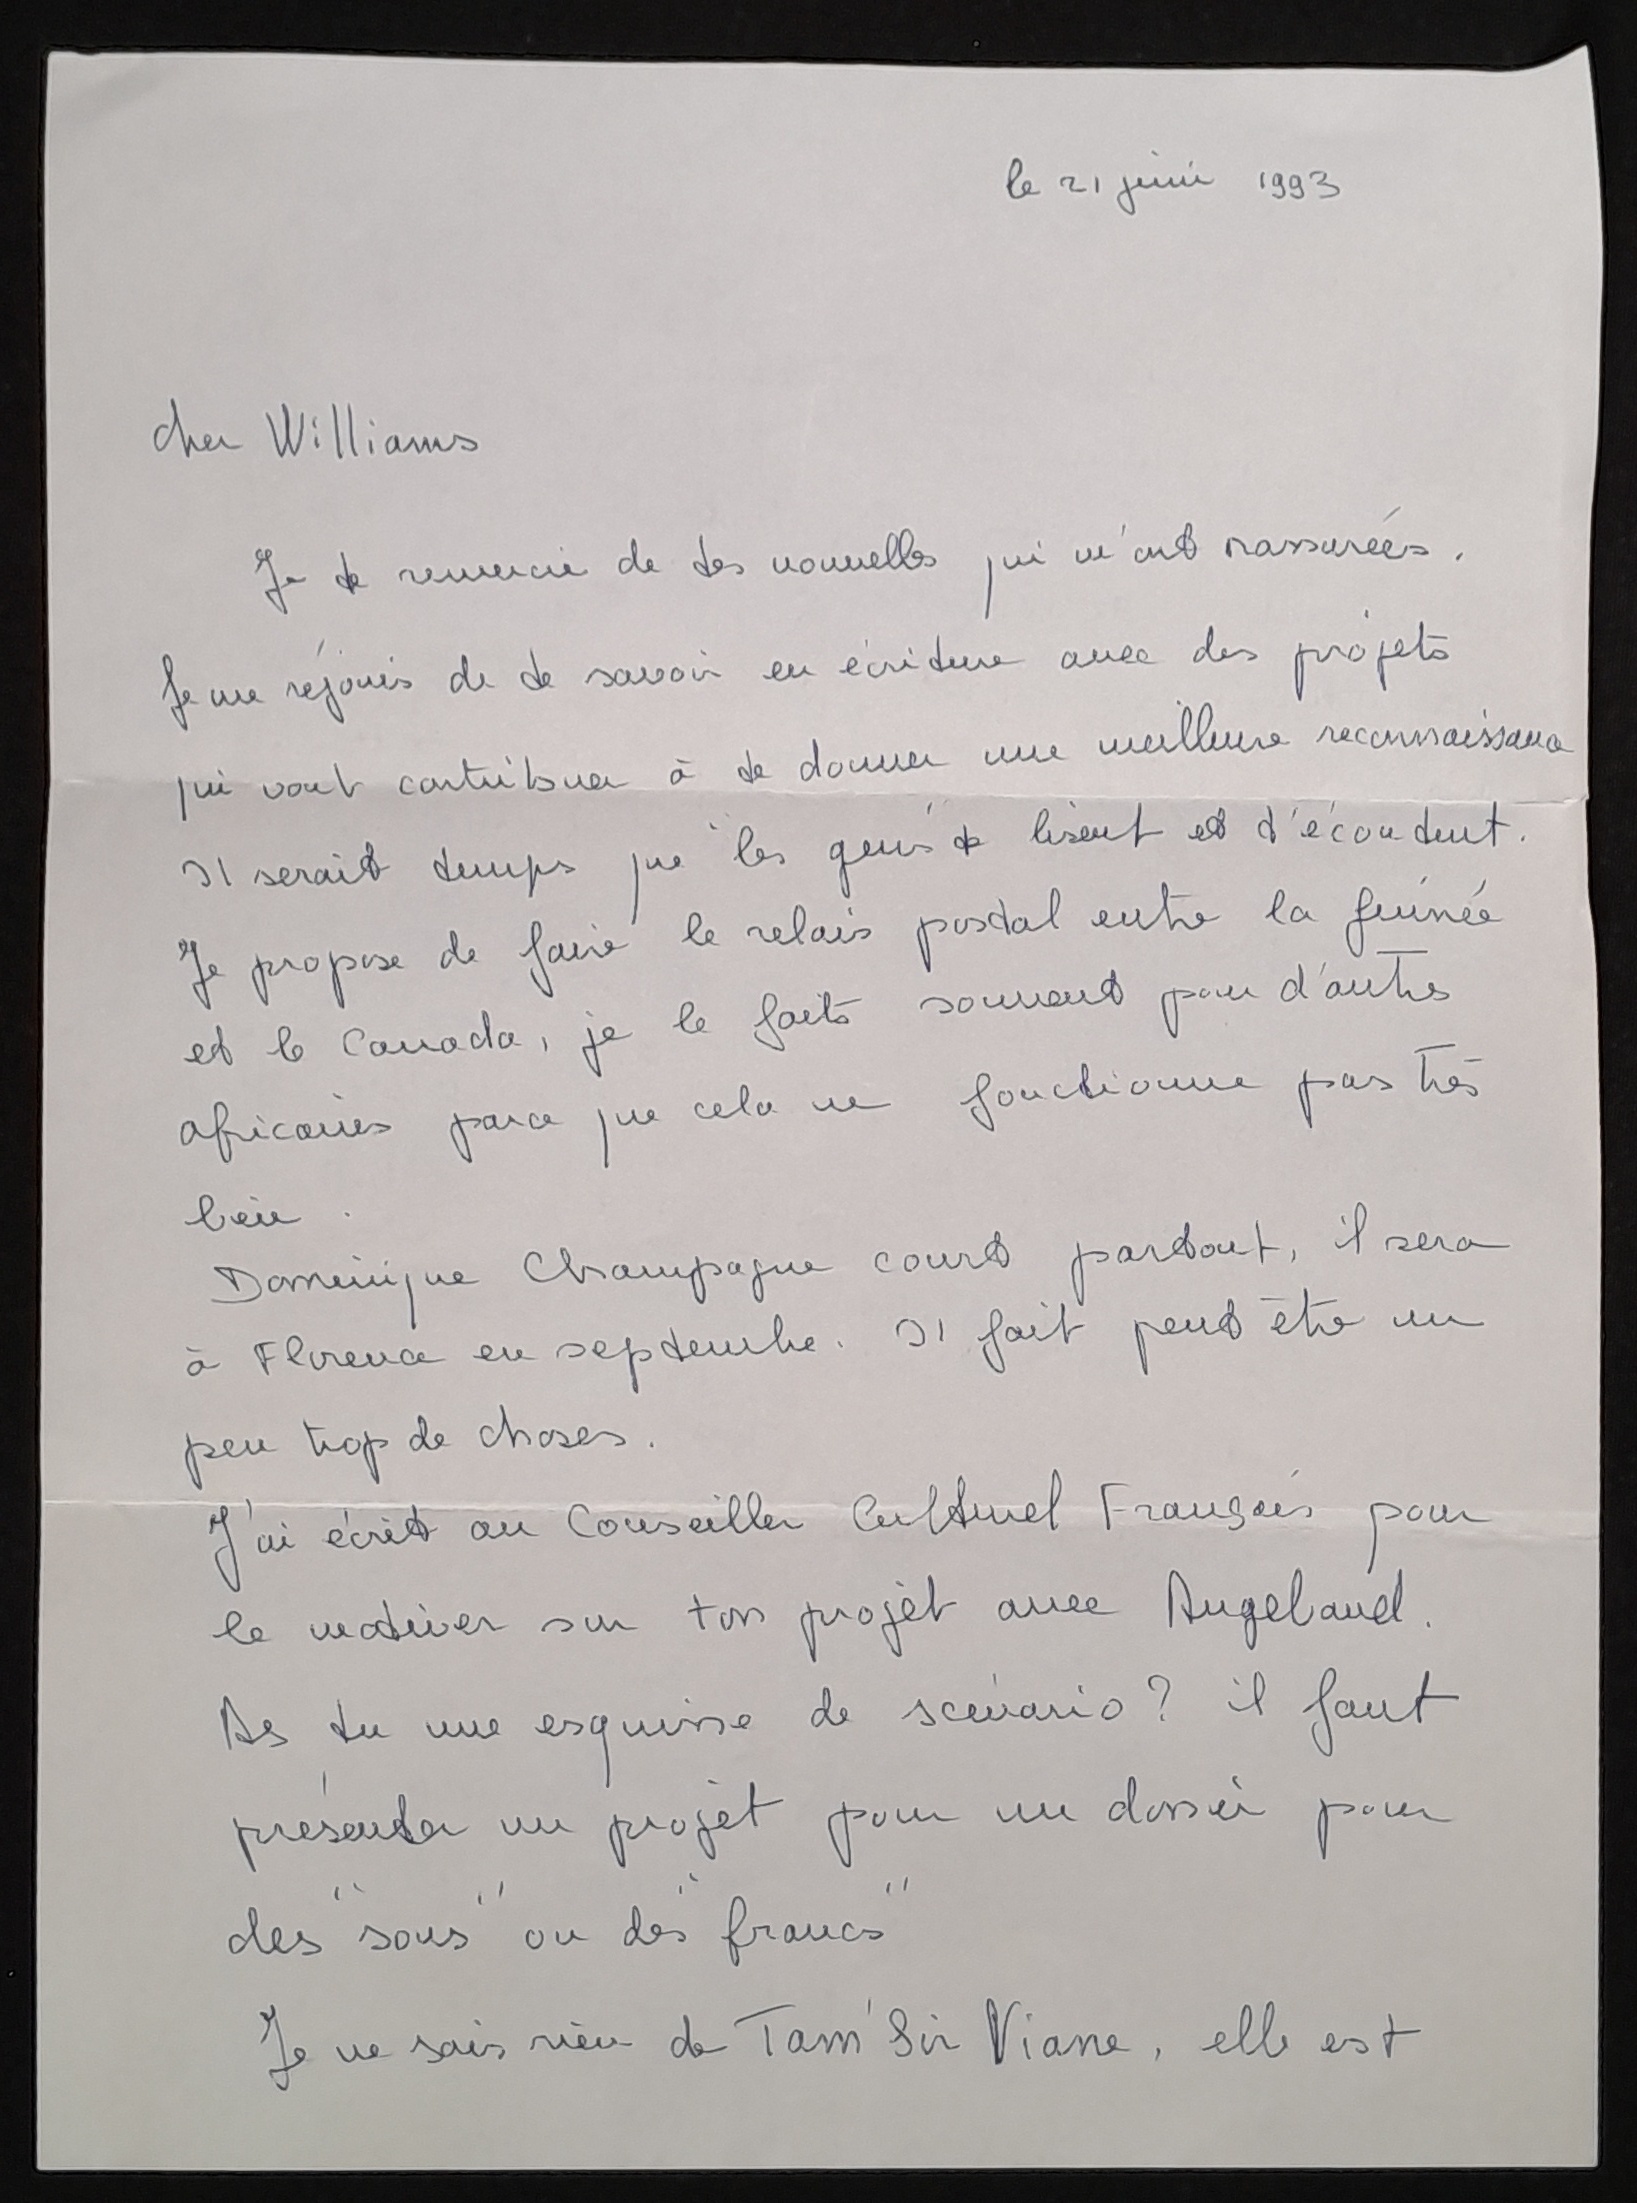 le 21 juin 1993
cher Williams
Je te remercie de tes nouvelles qui m'ont rassurées.
Je me réjouis de te savoir en écriture avec des projets
qui vont contribuer à te donner une meilleure reconnaissance
Il serait temps que "les gens" te lisent et t'écoutent.
Je propose de faire le relais postal entre la Guinée
et le Canada, je le faits souvent pour d'autres
africains parce que cela ne fonctionne pas très
bien.
Dominique Champagne court partout, il sera
à Florence en septembre. Il fait peut être un
peu trop de choses.
J'ai écrit au Conseiller Culturel Français pour
le motiver sur ton projet avec Angebaud.
As tu une esquisse de scénario? il faut
présenter un projet pour un dossier pour
des "sous" ou des "francs"
Je ne sais rien de Tam'Sir Viane, elle est